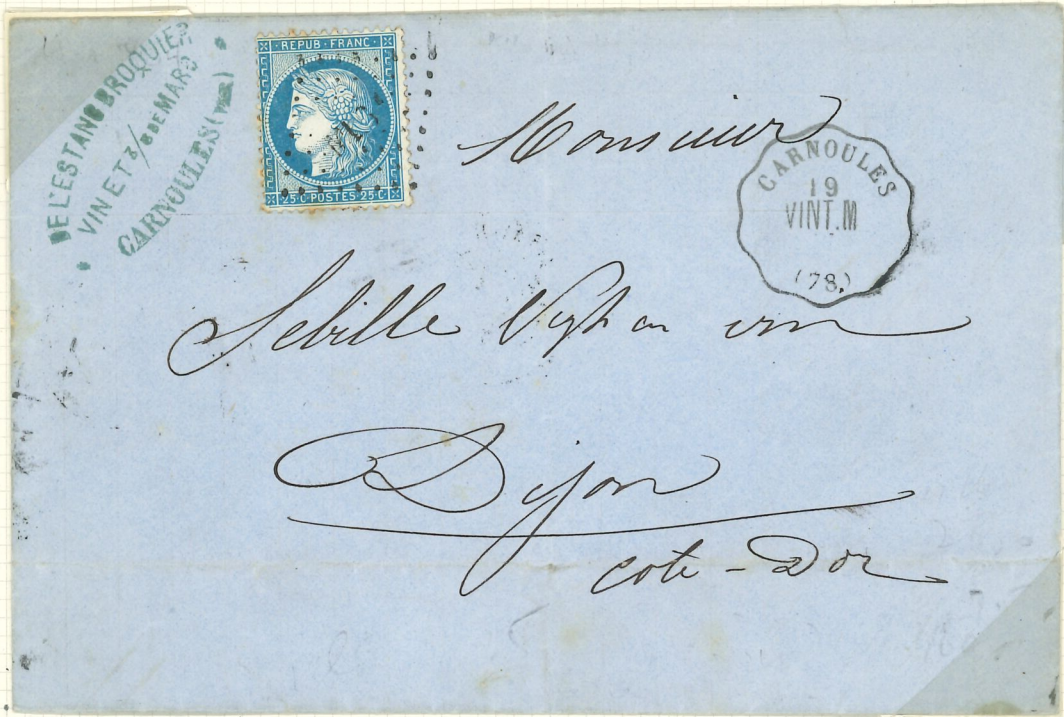 DE L'ESTANG BROQUIER
VIN ET 3/6 DE MARC
CARNOULES (VAR)
REPUB · FRANC
25 · C · POSTES · 25 · C
CARNOULES
19
VINT.M
(78)
Monsieur
Sebille
Dijon
Cote-Dor